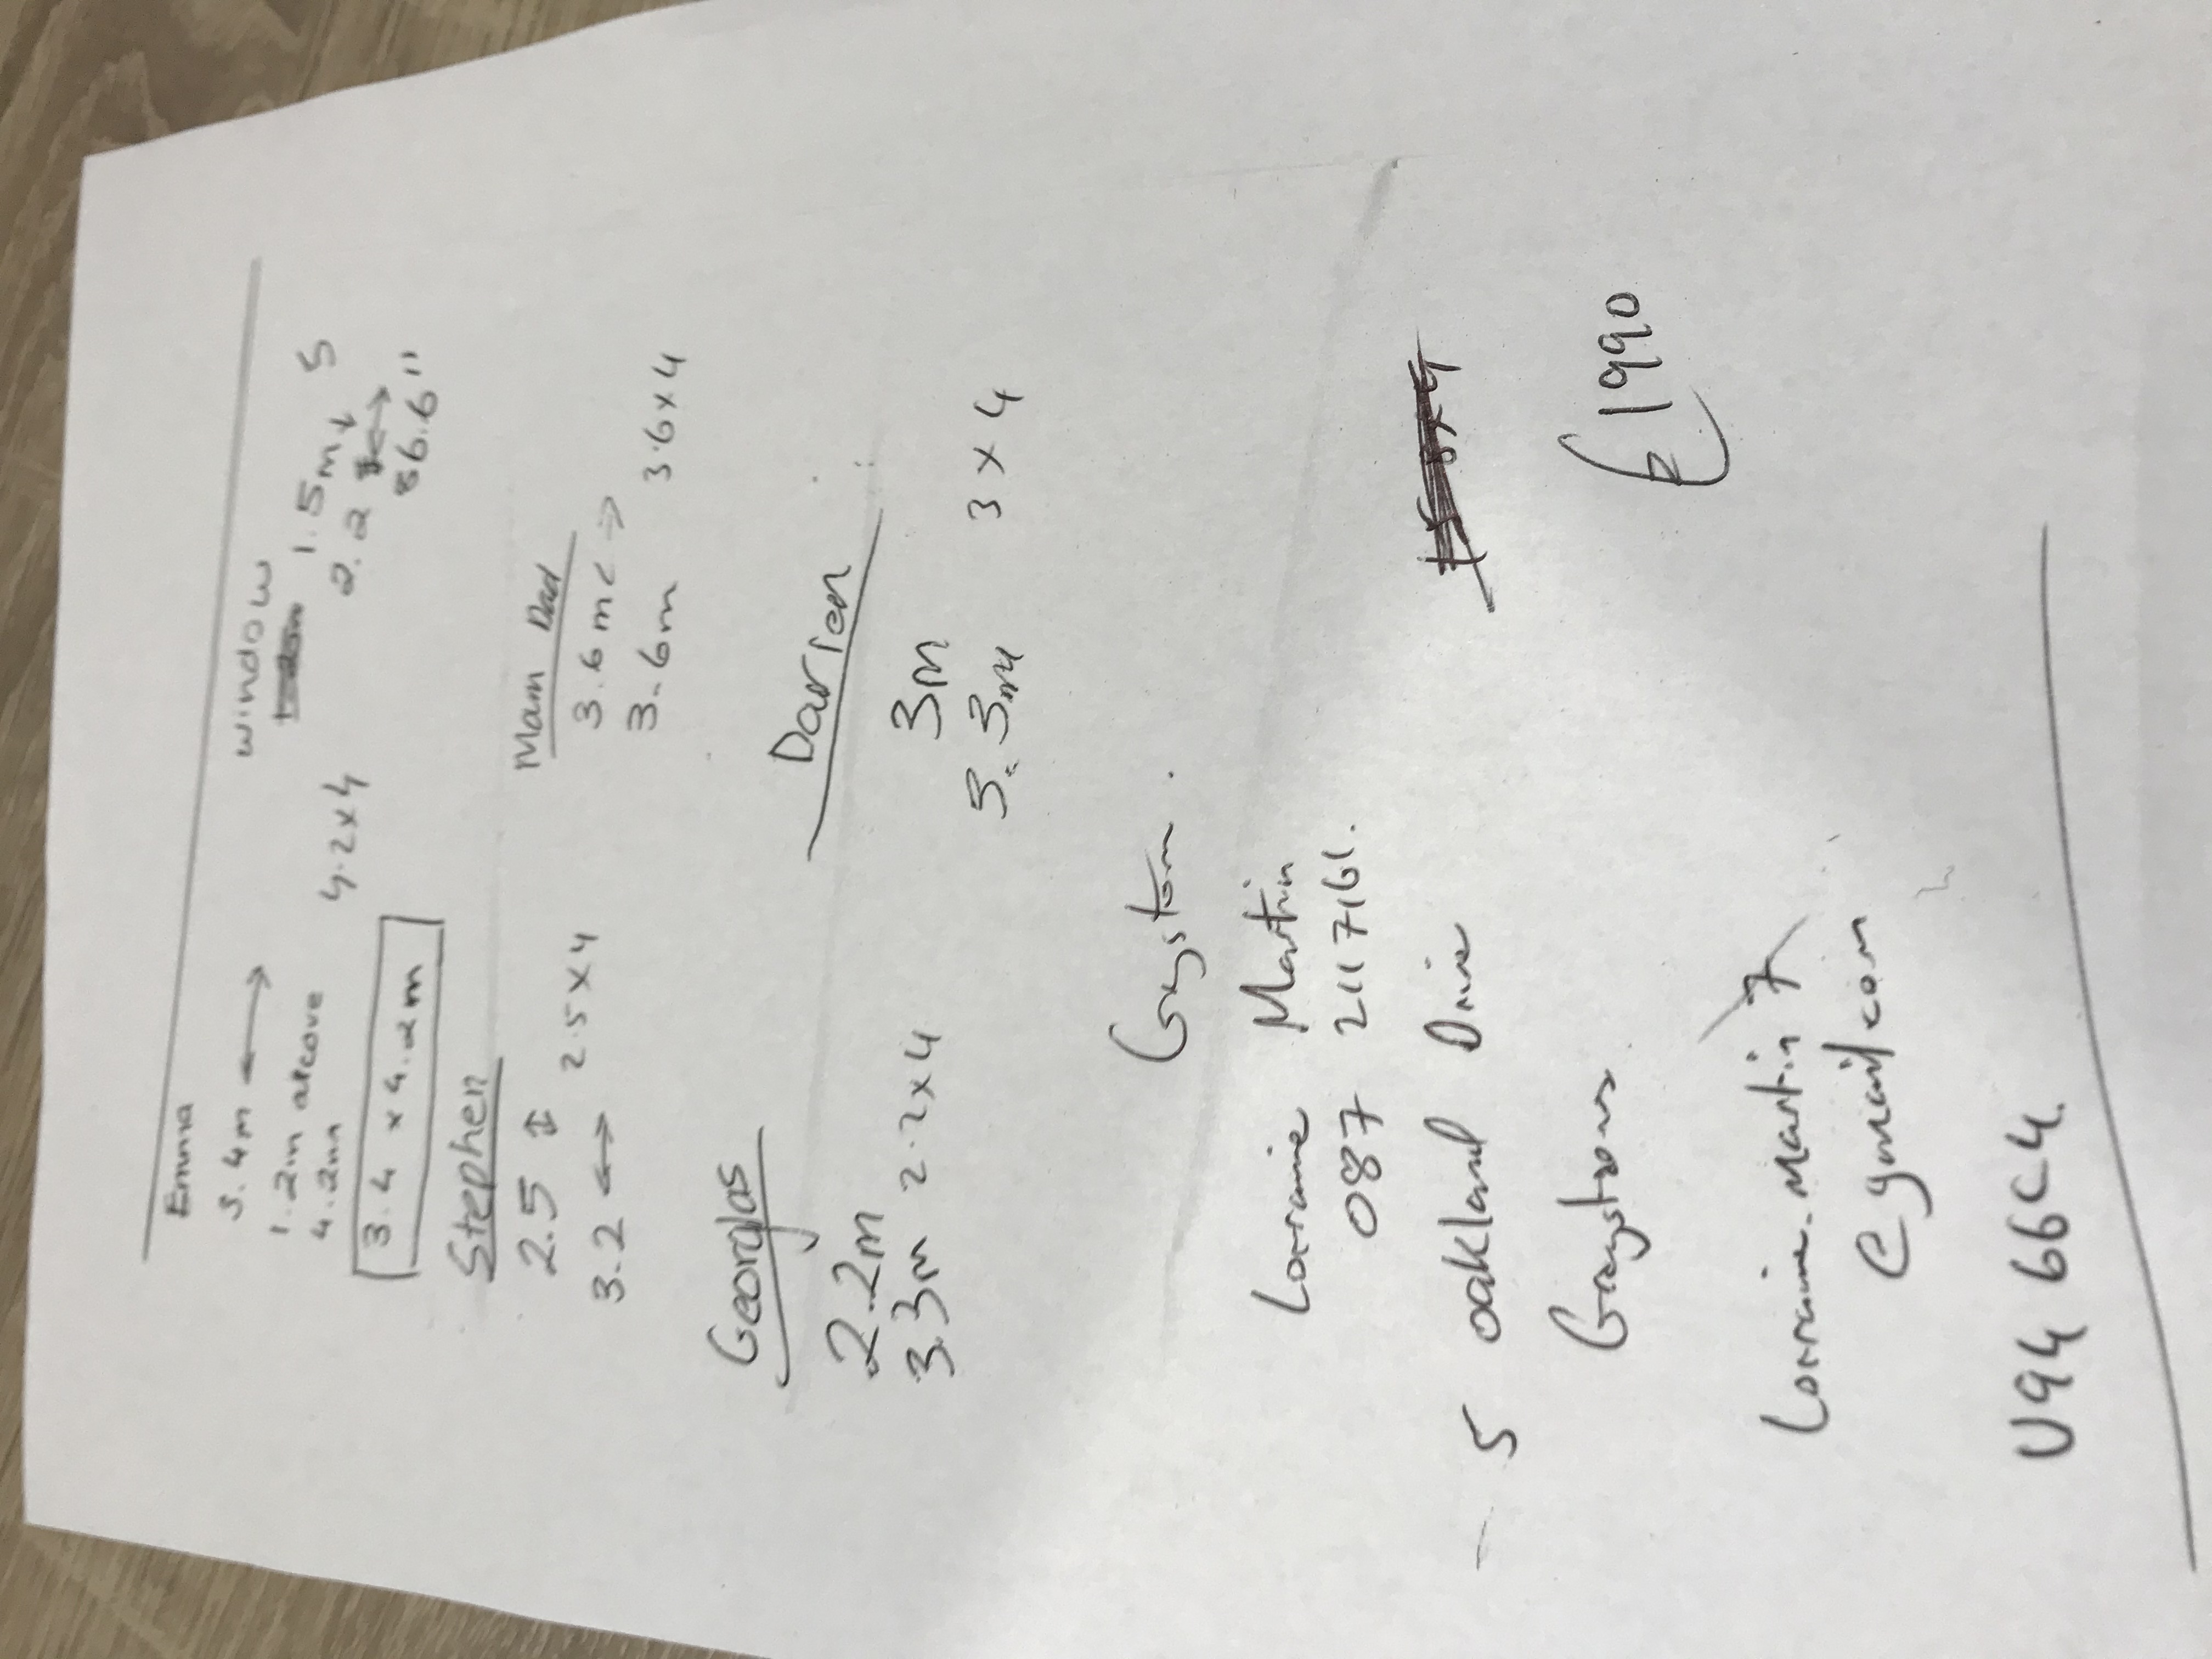 Emma
3.4m ⟷
1.2m alcove
4.2m
4.2x4
3.4 x 4.2m
window
1.5m ↓ 5
2.2 ⟷
86.6"
Stephen
2.5 ↕
3.2 ↔ 2.5 x 4
Mam Dad
3.6m <->
3.6m 3.6x4
Georgias
2.2m
3.3m 2.2x4
Darren
3m
3.3m 3x4
Lorraine Martin
087 2117161.
5 oakland Drive
Greystones
€1990
Lorraine.Martin7
@gmail.com
V94 66C4